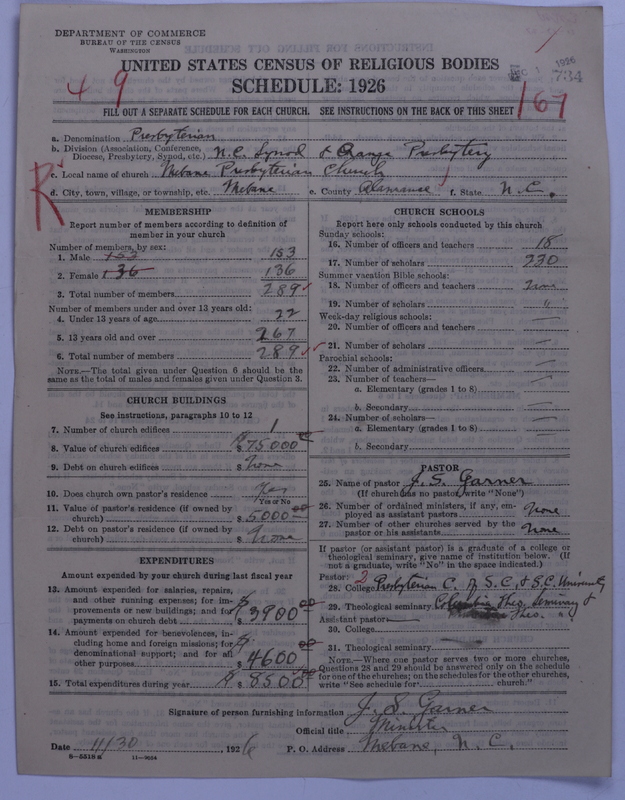 DEPARTMENT OF COMMERCE
BUREAU OF THE CENSUS
WASHINGTON
1926
734
UNITED STATES CENSUS OF RELIGIOUS BODIES
SCHEDULE: 1926
49
167
FILL OUT A SEPARATE SCHEDULE FOR EACH CHURCH. SEE INSTRUCTIONS ON THE BACK OF THIS SHEET
a. Denomination Presbyterian
b. Division (Association, Conference, Diocese, Presbytery, Synod, etc.) N.C. Synod & Orange Presbytery
c. Local name of church Mebane Presbyterian Church
d. City, town, village, or township, etc. Mebane e. County Alamance f. State N.C.
R
MEMBERSHIP
Report number of members according to definition of
member in your church
Number of members, by sex:
1. Male 153 153
2. Female 136 136
3. Total number of members 289
Number of members under and over 13 years old:
4. Under 13 years of age 22
5. 13 years old and over 267
6. Total number of members 289
NOTE.—The total given under Question 6 should be
same as the total of males and females given under Question 3.
CHURCH BUILDINGS
See instructions, paragraphs 10 to 12
7. Number of church edifices 1
8. Value of church edifices $ 75000 00
9. Debt on church edifices $ None
10. Does church own pastor's residence Yes
Yes or No
11. Value of pastor's residence (if owned by
church) $ 5000 00
12. Debt on pastor's residence (if owned by
church) $ None
EXPENDITURES
Amount expended by your church during last fiscal year
13. Amount expended for salaries, repairs,
and other running expenses; for im-
provements or new buildings; and for
payments on church debt $ 3900 00
14. Amount expended for benevolences, in-
cluding home and foreign missions; for
denominational support; and for all
other purposes $ 4600 00
15. Total expenditures during year $ 8500 00
CHURCH SCHOOLS
Report here only schools conducted by this church
Sunday schools:
16. Number of officers and teachers 18
17. Number of scholars 230
Summer vacation Bible schools:
18. Number of officers and teachers None
19. Number of scholars "
Week-day religious schools:
20. Number of officers and teachers —
21. Number of scholars —
Parochial schools:
22. Number of administrative officers —
23. Number of teachers—
a. Elementary (grades 1 to 8) —
b. Secondary —
24. Number of scholars—
a. Elementary (grades 1 to 8) —
b. Secondary —
PASTOR
25. Name of pastor J. S. Garner
(If church has no pastor, write "None")
26. Number of ordained ministers, if any, em-
ployed as assistant pastors None
27. Number of other churches served by the
pastor or his assistants None
If pastor (or assistant pastor) is a graduate of a college or
theological seminary, give name of institution below. (If
not a graduate, write "No" in the space indicated.)
Pastor: 2
28. College Presbyterian C. of S.C. & S.C. University
29. Theological seminary Columbia Theo. Seminary &
Theo. "
Assistant pastor:
30. College
31. Theological seminary
NOTE.—Where one pastor serves two or more churches,
Questions 28 and 29 should be answered only on the schedule
for one of the churches; on the schedules for the other churches,
write "See schedule for church."
Signature of person furnishing information J. S. Garner
Official title Minister
Date 11/30, 1926 P. O. Address Mebane, N. C.
8—5518a 11—9024